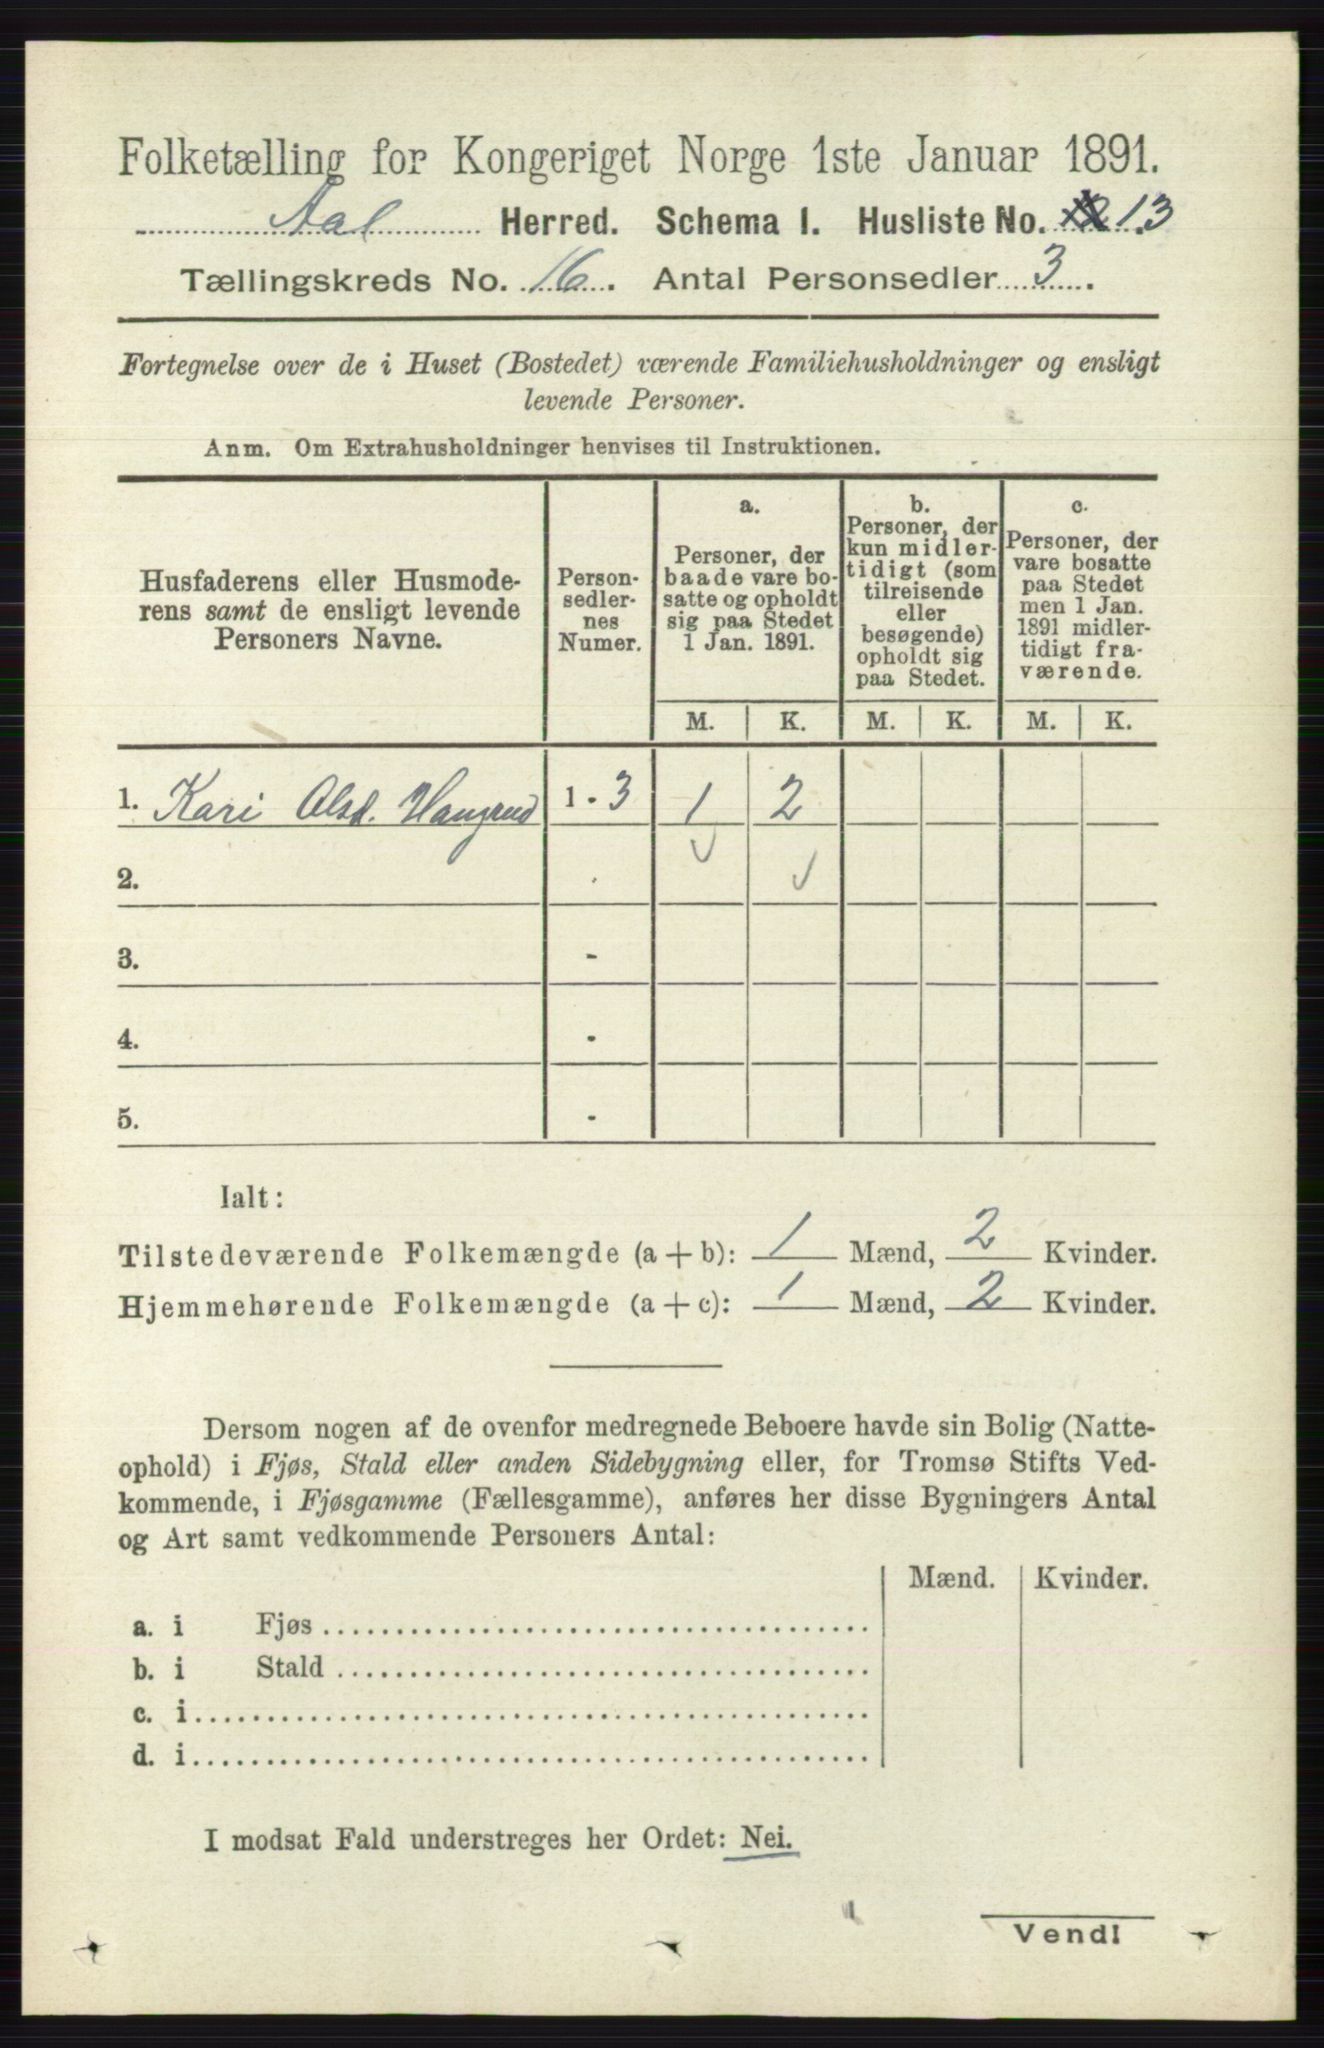 Folketælling for Kongeriget Norge 1ste Januar 1891.
Aal Herred. Schema I. Husliste No. 13
Tællingskreds No. 16. Antal Personsedler 3.
Fortegnelse over de i Huset (Bostedet) værende Familiehusholdninger og ensligt
levende Personer.
Anm. Om Extrahusholdninger henvises til Instruktionen.
Husfaderens eller Husmode-
rens samt de ensligt levende
Personers Navne.
Person-
sedler-
nes
Numer.
a.
Personer, der
baade vare bo-
satte og opholdt
sig paa Stedet
1 Jan. 1891.
b.
Personer, der
kun midler-
tidigt (som
tilreisende
eller
besøgende)
opholdt sig
paa Stedet.
c.
Personer, der
vare bosatte
paa Stedet
men 1 Jan.
1891 midler-
tidigt fra-
værende.
M. K. M. K. M. K.
1. Kari Olsd. 1 - 3 1 2
2.
3. -
4. -
5. -
Ialt:
Tilstedeværende Folkemængde (a + b): 1 Mænd, 2 Kvinder.
Hjemmehørende Folkemængde (a + c): 1 Mænd, 2 Kvinder.
Dersom nogen af de ovenfor medregnede Beboere havde sin Bolig (Natte-
ophold) i Fjøs, Stald eller anden Sidebygning eller, for Tromsø Stifts Ved-
kommende, i Fjøsgamme (Fællesgamme), anføres her disse Bygningers Antal
og Art samt vedkommende Personers Antal:
Mænd. Kvinder.
a. i Fjøs
b. i Stald
c. i
d. i
I modsat Fald understreges her Ordet: Nei.
Vend!